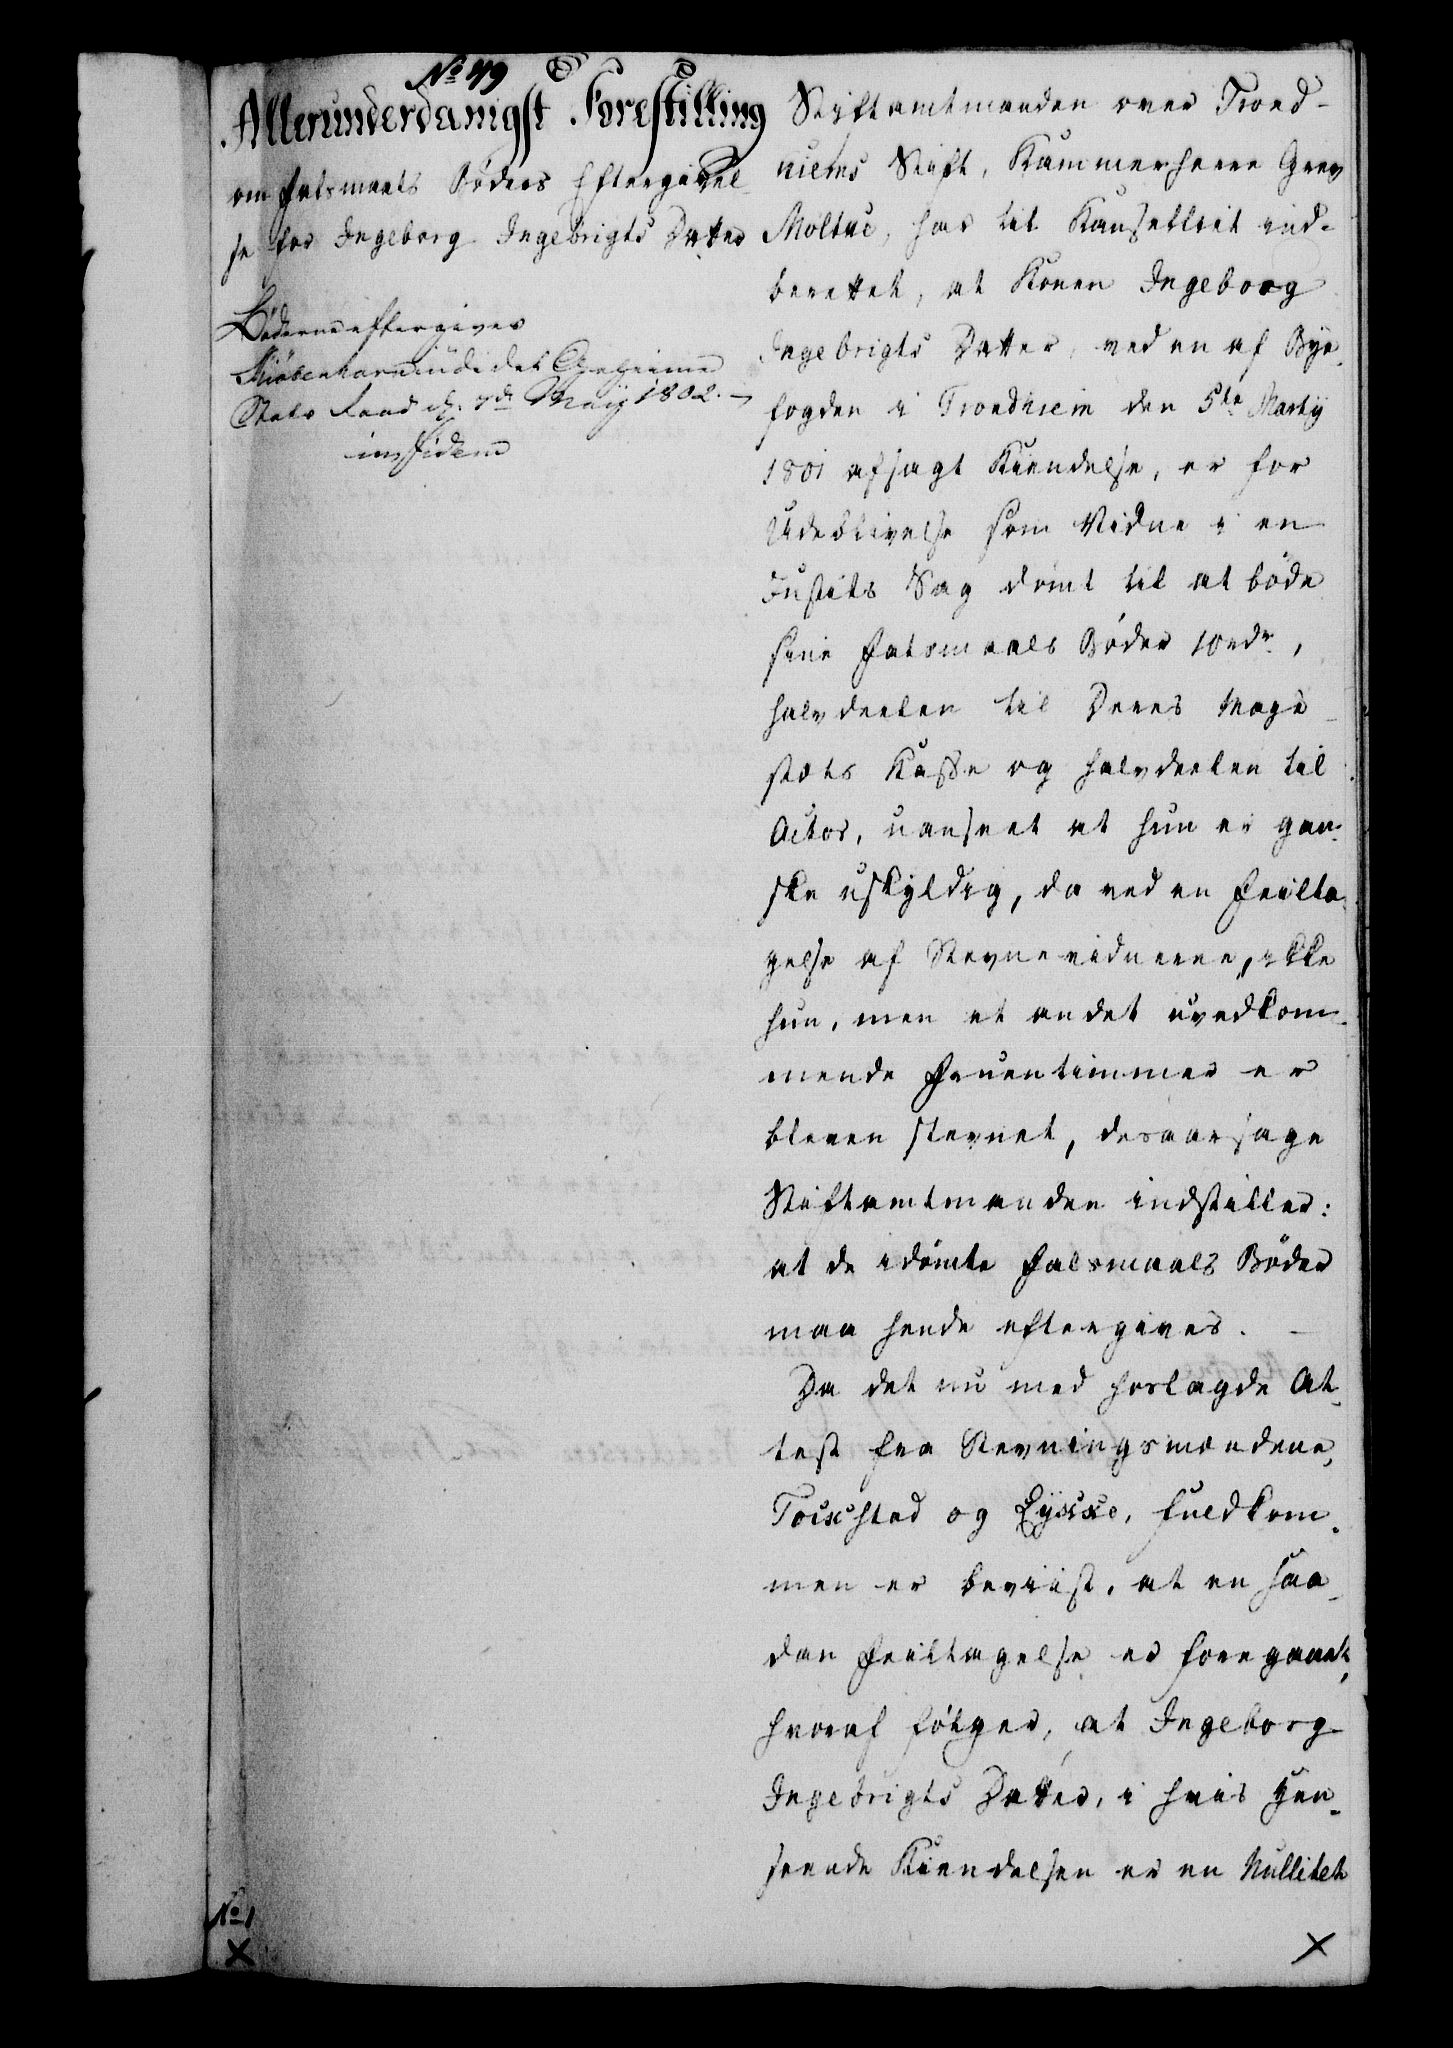 No 79
Allerunderdanigst Forestilling
om Falsmaals Bøders Eftergivel-
se for Ingeborg Ingebrigts Datter
Bøderne eftergives
Kiøbenhavn udi det Geheime
Stats Raad d. 7de Maij 1802.
in fidem
Stiftamtmanden over Trond-
hiems Stift, Kammerherre Grev
Moltke, har til Kanselliet ind-
berettet, at Konen Ingeborg
Ingebrigts Datter, ved en af Bye-
fogden i Trondhiem den 5te Martij
1801 afsagt Kiendelse, er for
Udeblivelse som Vidne i en
Justits Sag dømt til at bøde
sine Falsmaals Bøder 10 rdr,
halvdeelen til Deres Maje-
stæts Kasse og halvdeelen til
Actor, uanseet at hun er gan-
ske uskyldig, da ved en Feilta-
gelse af Stevnevidnerne, ikke
hun, men et andet uvedkom-
mende Fruentimmer er
bleven stevnet, desaarsage
Stiftamtmanden indstiller:
at de idømte Falsmaals Bøder
maa hende eftergives.
Da det nu med forlagde At-
test fra Stevningsmændene,
og fuldkom-
men er beviist, at en saa-
dan Feiltagelse er foregaaet,
hvoraf følger, at Ingeborg
Ingebrigts Datter, i hvis Hen-
seende Kiendelsen er en Nullitet
No 1
X
X